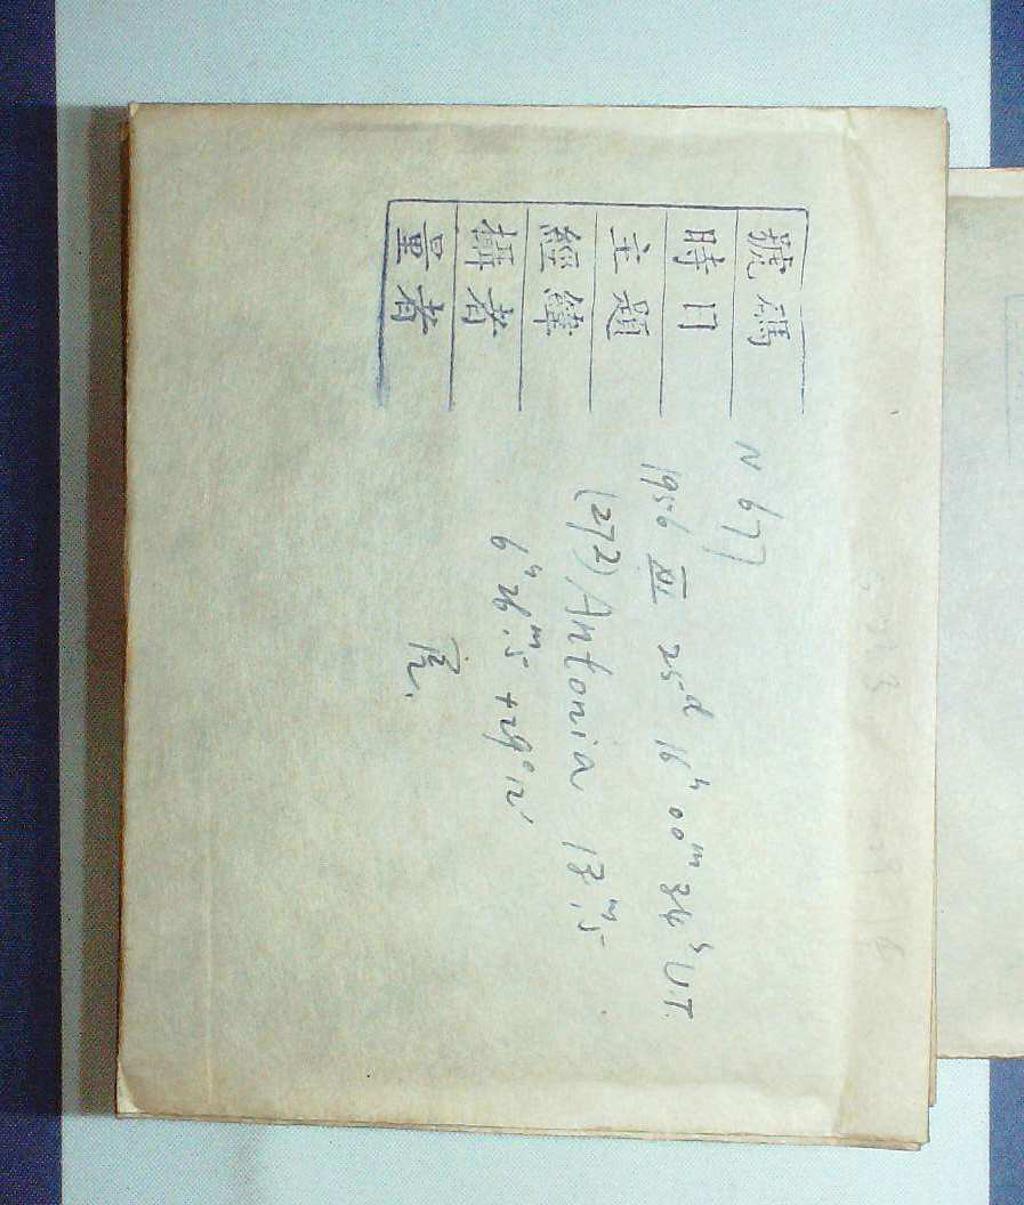 號碼 N 677
時日 1956 XI 25d 16h 00m 34s U.T.
主題 (272) Antonia 13m.5
經緯 6h 26m.5 +24°12'
攝者
量者